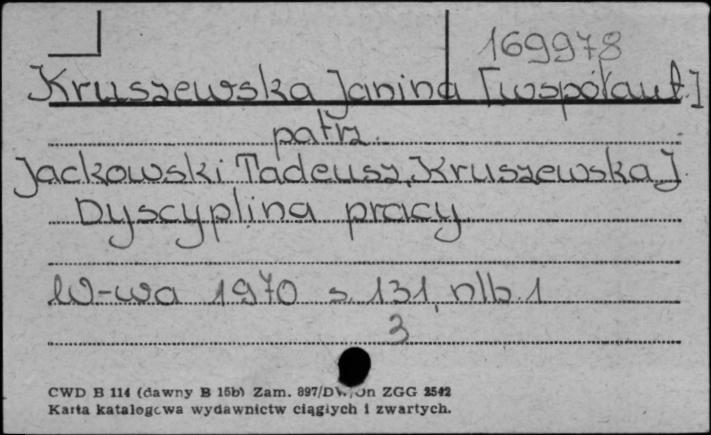 169978
Kruszewska Janina [współaut.]
patrz
Jackowski Tadeusz, Kruszewska J.
Dyscyplina pracy
W-wa 1970 s. 131, nlb. 1
3
CWD B 114 (dawny B 15b) Zam. 897/DW/On ZGG 2542
Karta katalogowa wydawnictw ciągłych i zwartych.